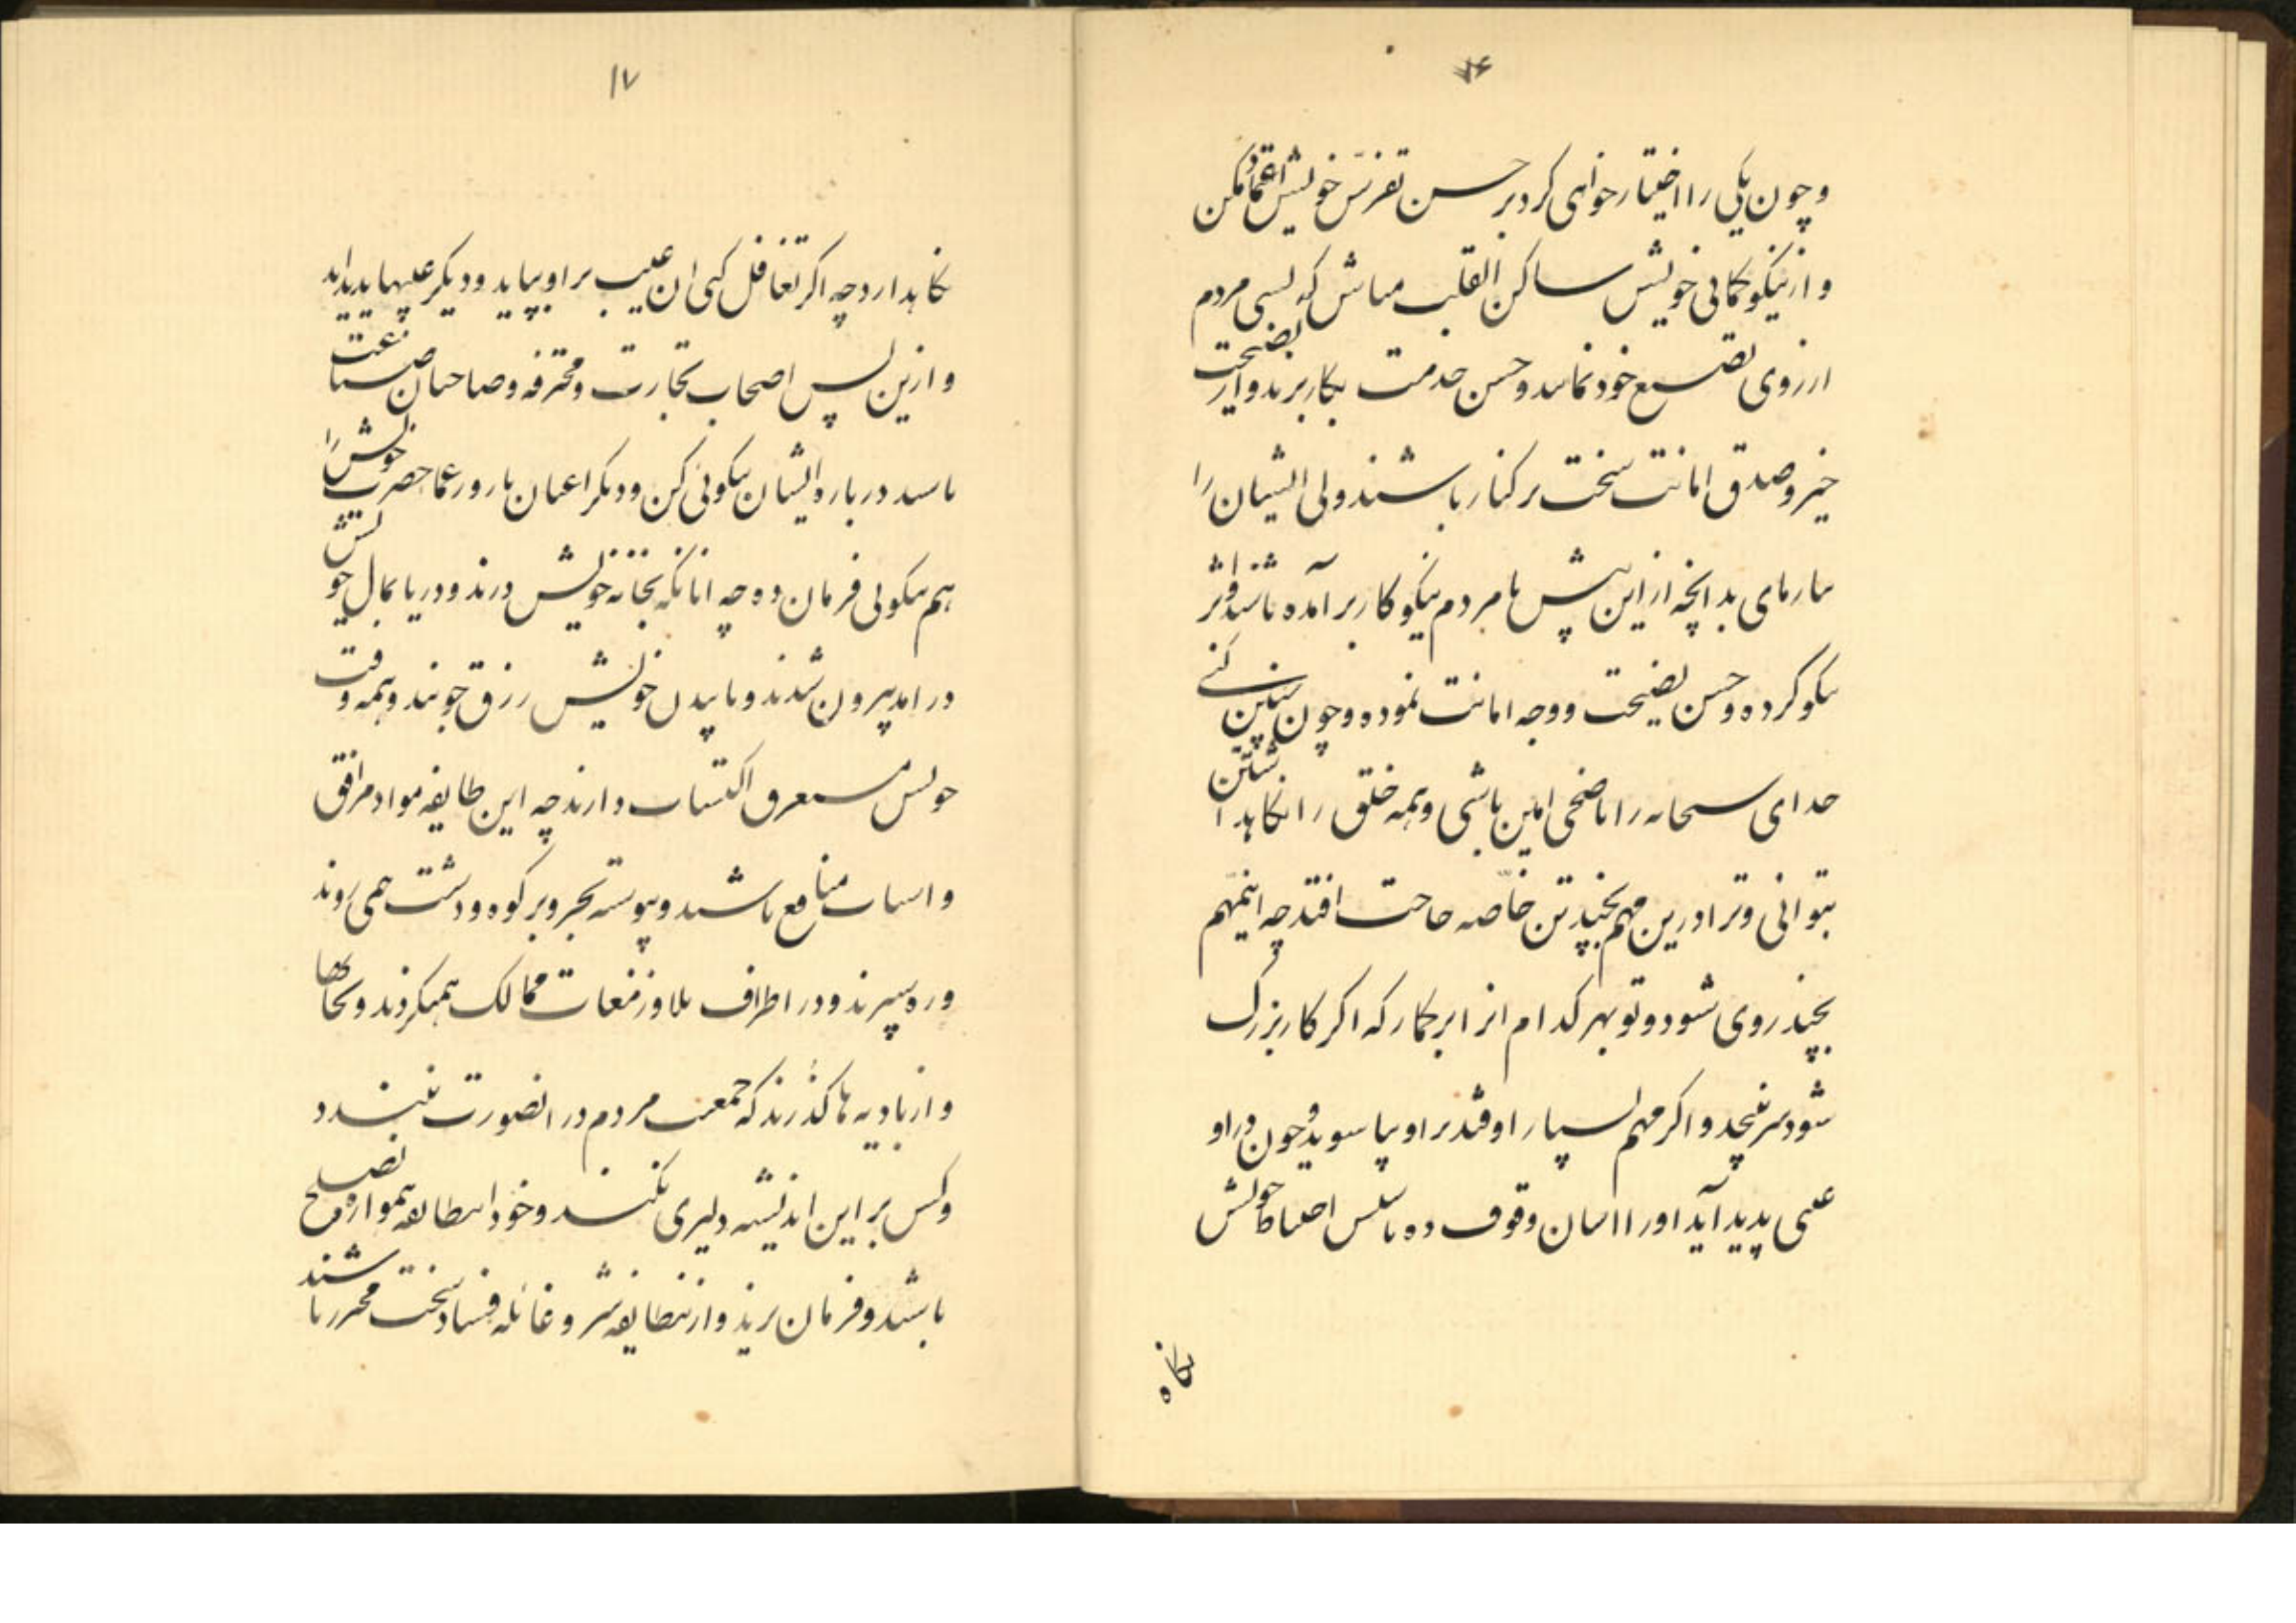 ۷۶
وچون یکی را اختیار خواهی کرد بر حسن تفرس خویش اعتماد مکن
و از نیکو کمانی خویش ساکن القلب مباش که بسی مردم
از روی تصنع خود نمایند و حسن خدمت بکار برند و از نصیحت
خیر و صدق امانت سخت بر کنار باشند ولی ایشان را
بیازمای بدانچه از این پیش با مردم نیکوکار بر آمده باشند و اثر
نیکو کرده و حسن نصیحت و وجه امانت نموده و چون چنین کنی
خدای سبحانه را ناصحی امین باشی و همه خلق را نکاهداشتن
بتوانی و ترا درین مهم بچند تن خاصه حاجت افتد چه اینمهم
بچند روی شود و تو بهر کدام از ابرکمار که اکر کار بزرک
شود سر نپیچد و اکر مهم بسیار اوفتد بر او نپاسوید و چون در او
عیبی پدید آید او را آسان وقوف ده تا نفس احتیاط خویش
نکاه
۱۷
نکاهدارد چه اکر تغافل کنی ان عیب بر او بپاید و دیکر عیبها پدید اید
و ازین پس اصحاب تجارت و محترفه و صاحبان صناعت
باشند درباره ایشان نیکوئی کن و دیکر اعیان بارور عما حضرت خویش را
هم نیکوئی فرمان ده چه انانکه بخانه خویش درند و در یا بمال خویش
در امد بیرون شدند و با بدن خویش رزق جویند و همه وقت
خویش مستغرق اکتساب دارند چه این طایفه مواد مرافق
و اسباب منافع باشند و پیوسته بحر و بر کوه و دشت همی روند
وره سپرند و در اطراف بلاد و زمعات ممالک همیکردند و بجاها
و از بادیه ها کذرند که جمعیت مردم در انصورت نبندد
و کس بر این اندیشه دلیری نکند و خود اینطایفه همواره مصلح
باشند و فرمان برند و از ینطایفه شر و غائله فساد سخت محرر باشند